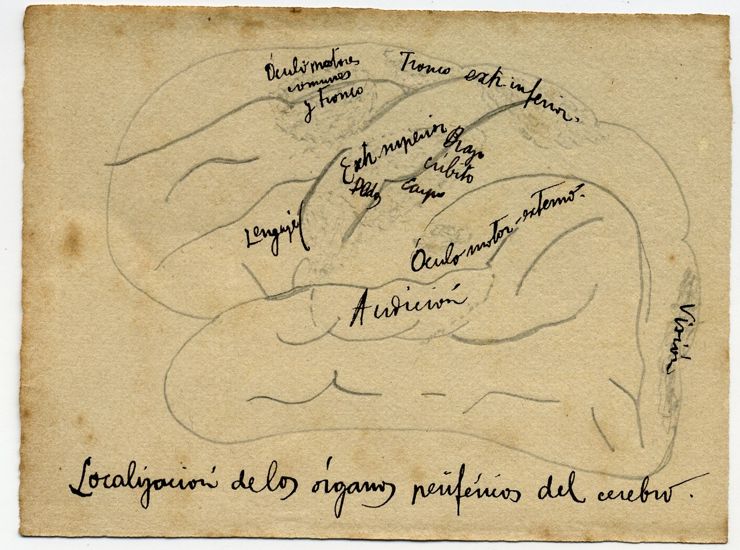 Óculo motores
comunes
y tronco
Tronco extr inferior.
Extr superior
Brazo
cúbito
Carpo
Lenguaje
Óculo motor-externo.
Audición
Visión
Localización de los órganos periféricos del cerebro.